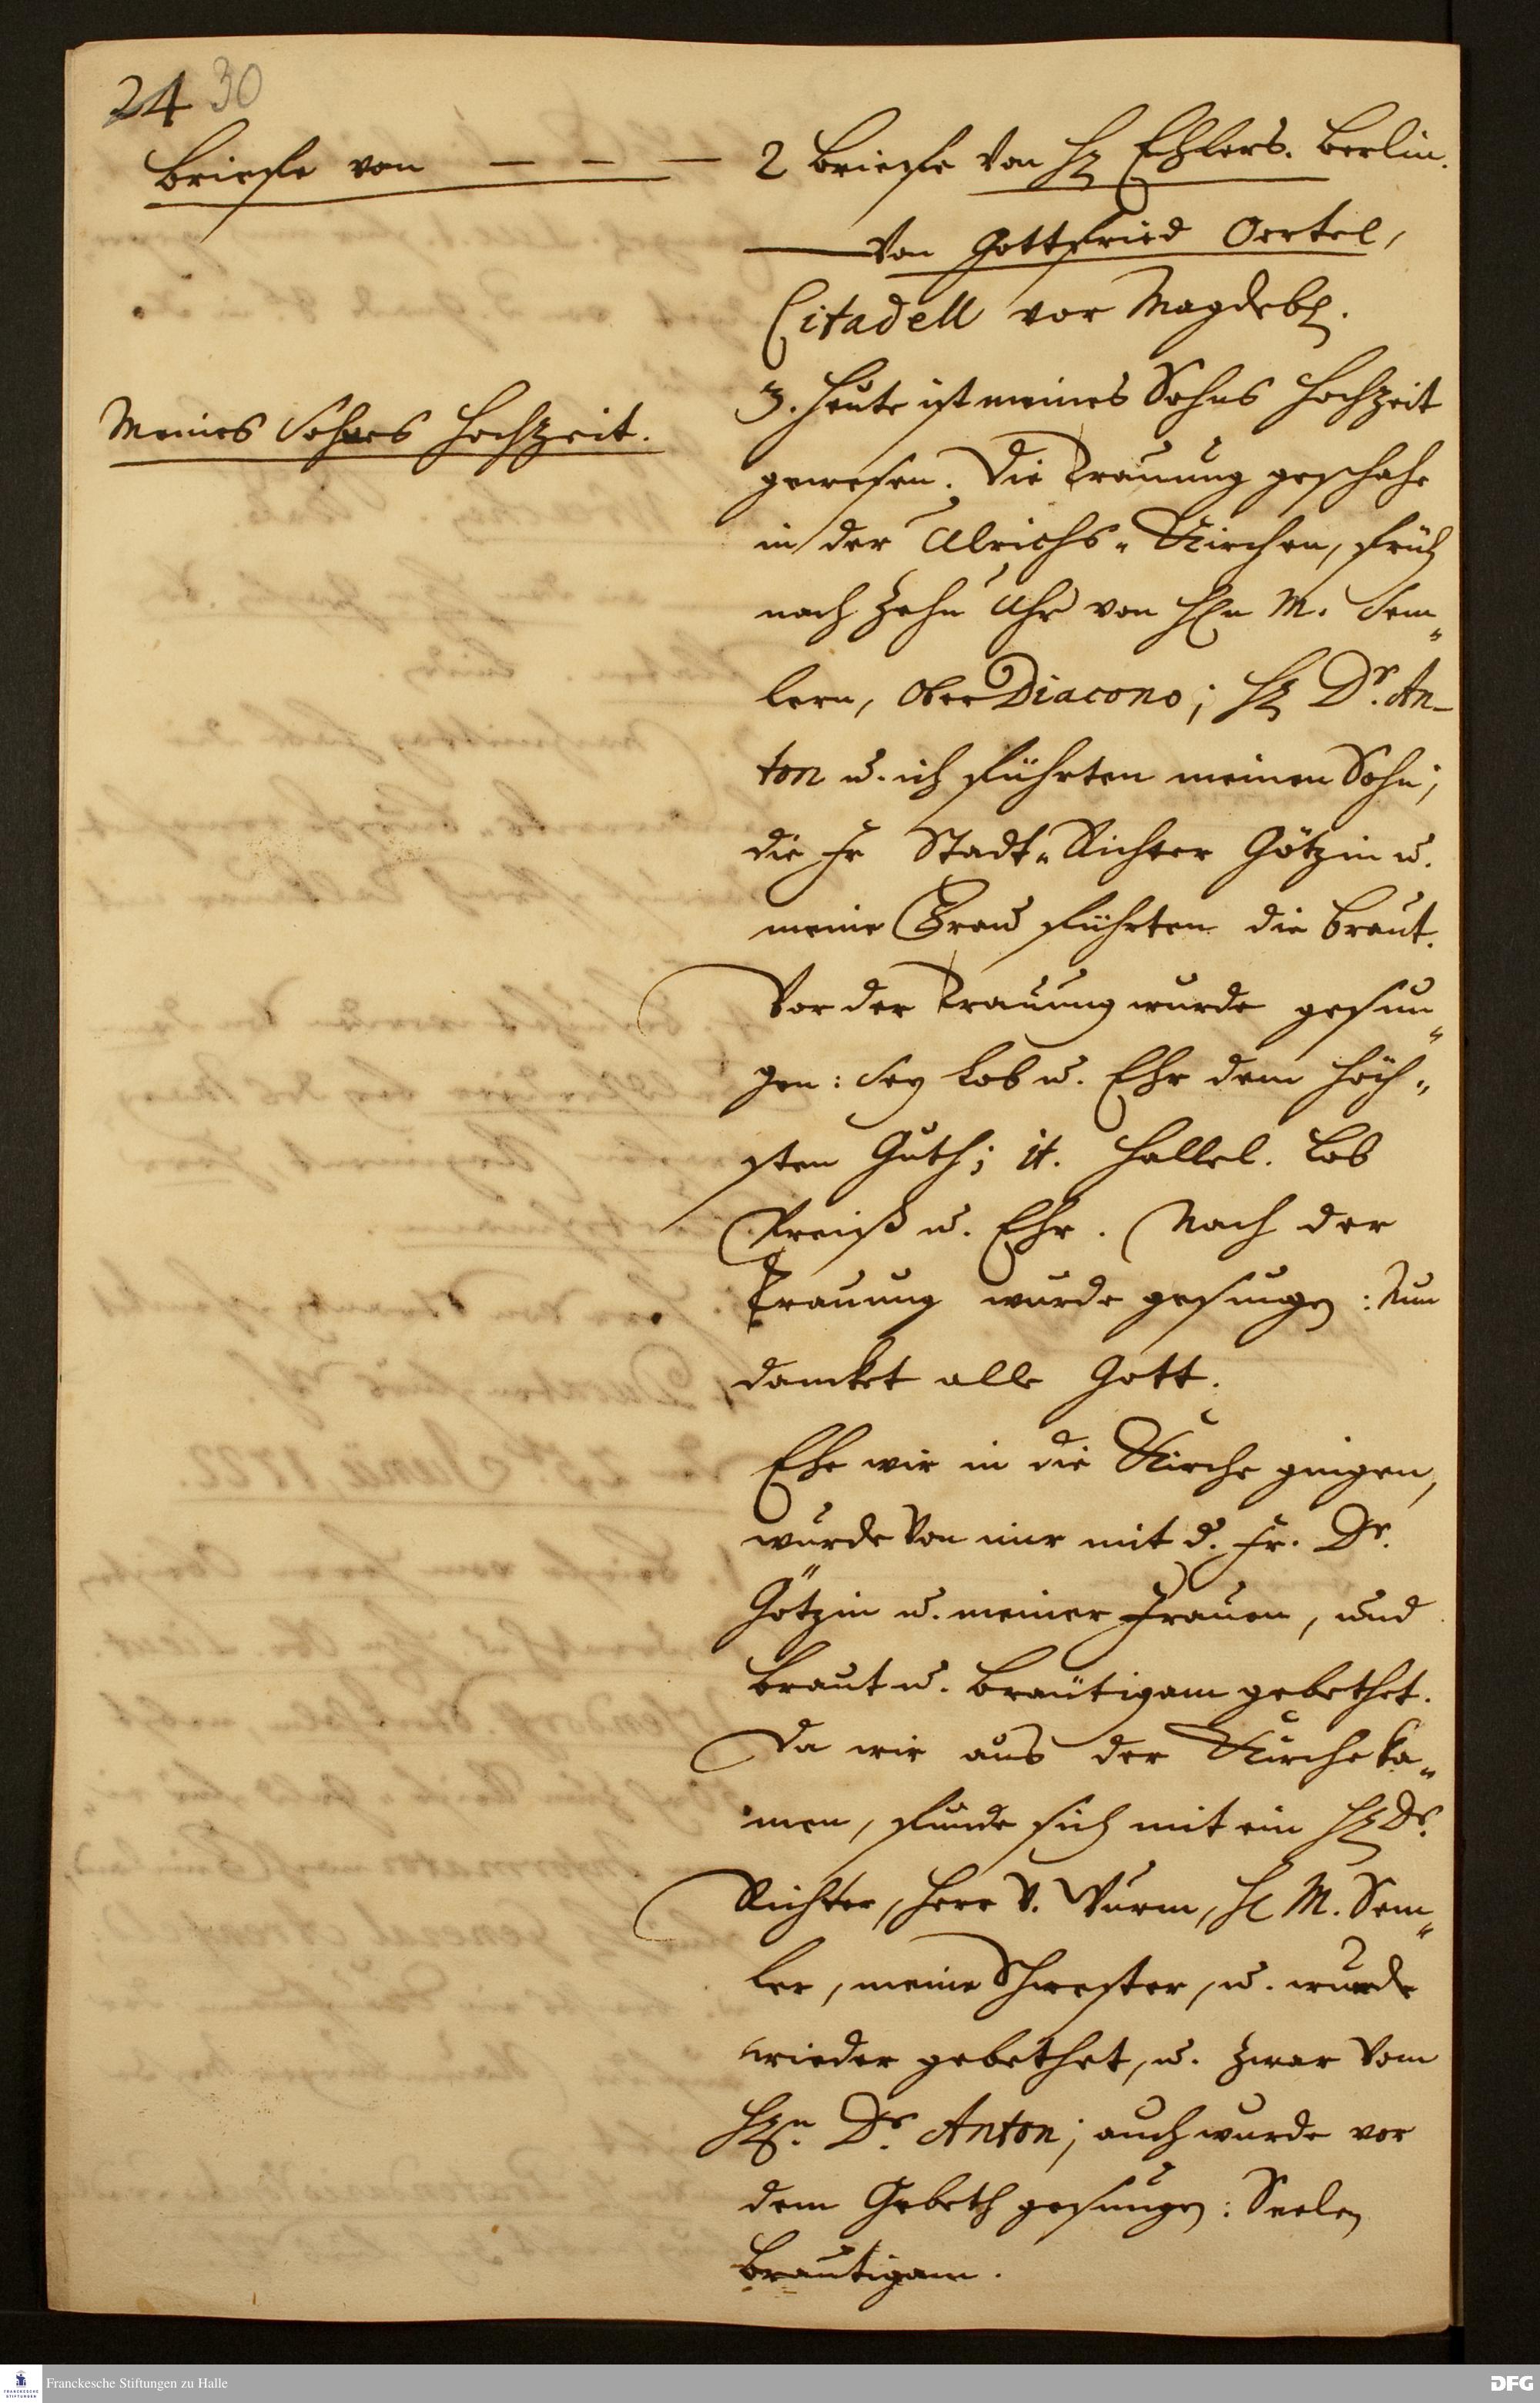 24 30
Briefe von — — —
2 Briefe von H. Ehlers. Berlin.
— von Gottfried Oertel,
Citadell vor Magdeb.
Meines Sohnes Hochzeit.
3. Heute ist meines Sohns Hochzeit
gewesen. Die Trauung geschahe
in der Ulrichs-Kirchen, früh
nach zehn Uhr von H.n M. Sem-
lern, Ober Diacono; H. Dr. An-
ton u. ich führten meinen Sohn;
die Fr Stadt-Richter Götzin u.
meine Frau führten die Braut.
Vor der Trauung wurde gesun-
gen: Sey Lob u. Ehr dem höch-
sten Guth; it. Hallel. Lob
Preiß u. Ehr. Nach der
Trauung wurde gesungen: Nun
dancket alle Gott.
Ehe wir in die Kirche gingen,
wurde von mir mit d. Fr. Dr.
Götzin u. meiner Frauen, und
Braut u. Bräutigam gebethet.
Da wir aus der Kirche ka-
men, funde sich mit ein H. Dr.
Richter, Herr v. Wurm, H. M. Sem-
ler, meine Schwester, u. wurde
wieder gebethet, u. zwar vom
H.n Dr. Anton; auch wurde vor
dem Gebeth gesungen: Seelen
Bräutigam.
Franckesche Stiftungen zu Halle
DFG